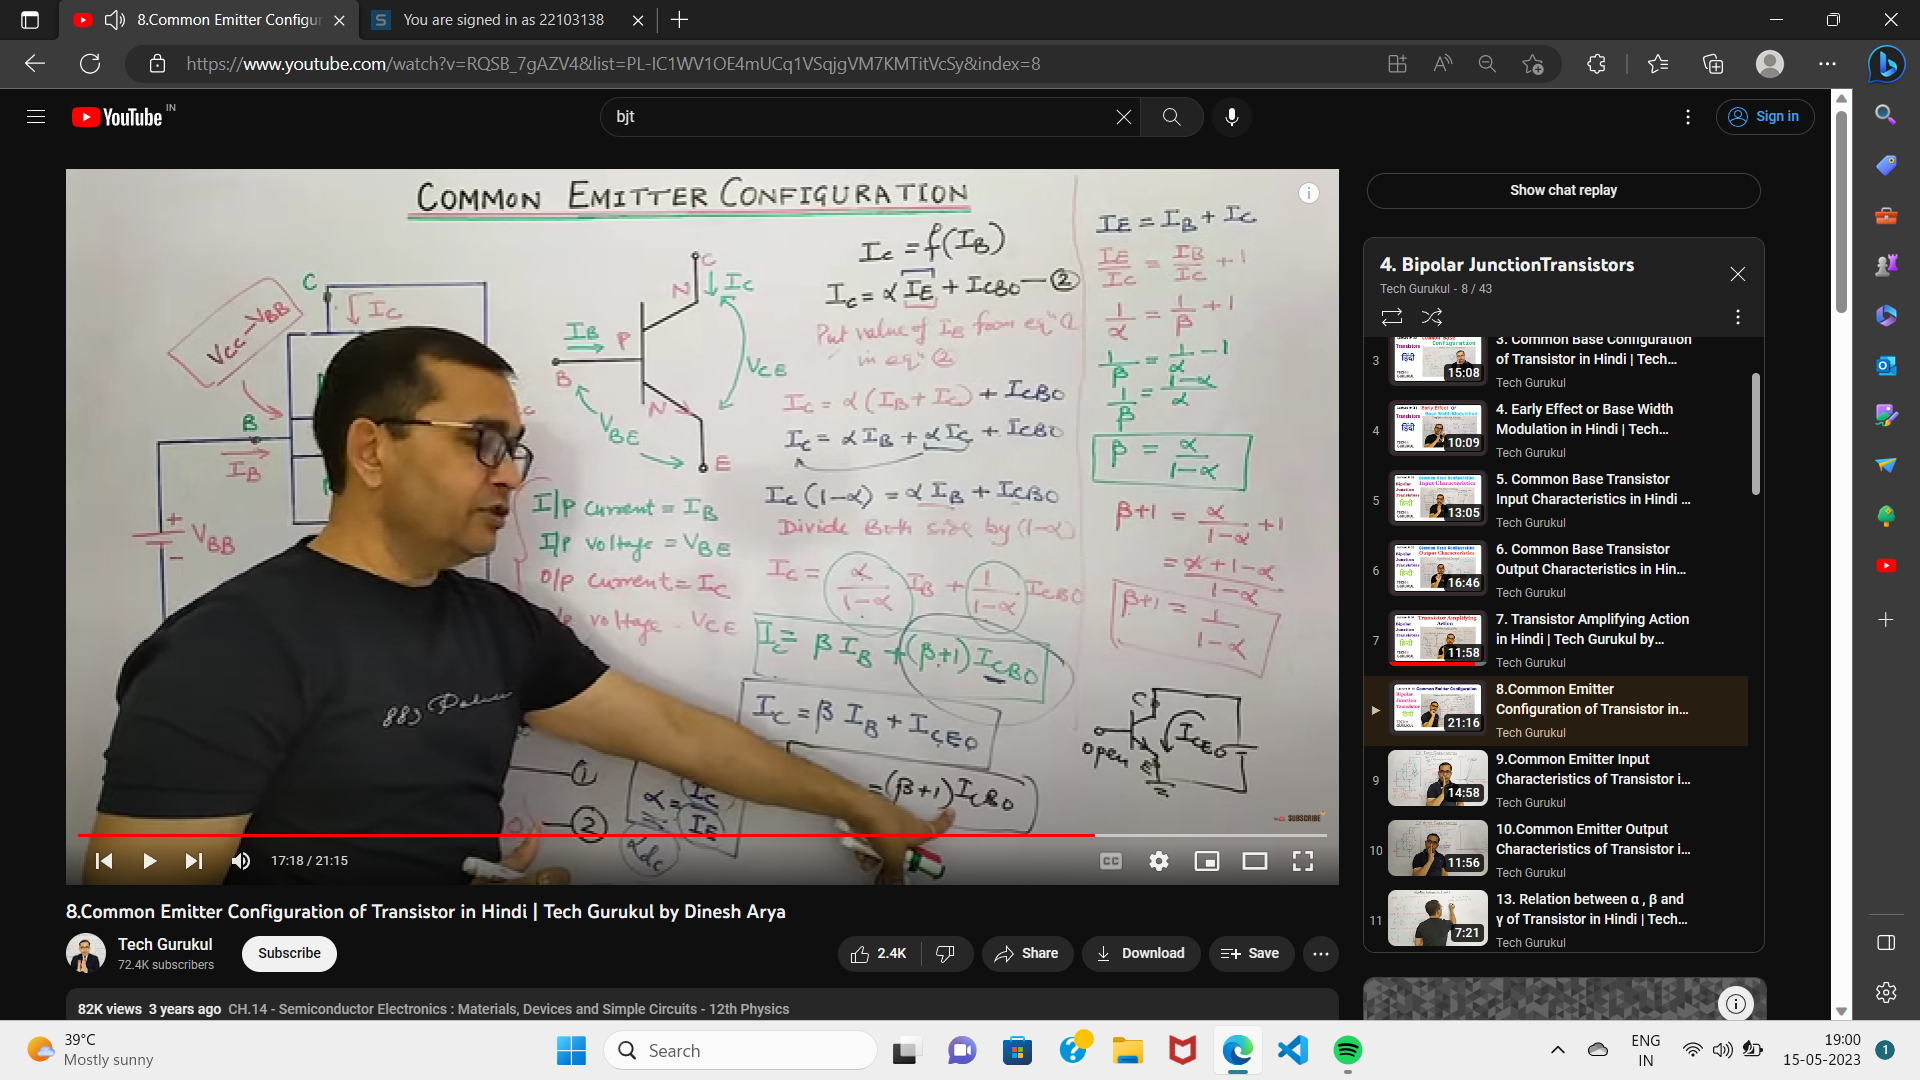 8.Common Emitter Configur
You are signed in as 22103138
https://www.youtube.com/watch?v=RQSB_7gAZV4&list=PL-IC1WV1OE4mUCq1VSqjgVM7KMTitVcSy&index=8
YouTube IN
bjt
Sign in
COMMON EMITTER CONFIGURATION
VCC-VBB
C
IC
B
IB
+
VBB
-
C
N
IC
IB
P
B
VCE
N
VBE
E
I/P current = IB
I/P voltage = VBE
O/P current = IC
voltage - VCE
IC = f(IB)
IC = α IE + ICBO — ②
Put value of IE from eqn ①
in eqn ②
IC = α (IB + IC) + ICBO
IC = α IB + α IC + ICBO
IC (1-α) = α IB + ICBO
Divide Both side by (1-α)
IC = α/(1-α) IB + 1/(1-α) ICBO
IC = β IB + (β+1) ICBO
IC = β IB + ICEO
= (β+1) ICBO
①
②
α = IC/IE
αdc
IE = IB + IC
IE/IC = IB/IC + 1
1/α = 1/β + 1
1/β = 1/α - 1
1/β = (1-α)/α
β = α/(1-α)
β+1 = α/(1-α) + 1
= (α+1-α)/(1-α)
β+1 = 1/(1-α)
C
ICEO
open
E
SUBSCRIBE
17:18 / 21:15
CC
8.Common Emitter Configuration of Transistor in Hindi | Tech Gurukul by Dinesh Arya
Tech Gurukul
72.4K subscribers
Subscribe
2.4K
Share
Download
Save
82K views 3 years ago CH.14 - Semiconductor Electronics : Materials, Devices and Simple Circuits - 12th Physics
Show chat replay
4. Bipolar JunctionTransistors
Tech Gurukul - 8 / 43
3
15:08
3. Common Base Configuration
of Transistor in Hindi | Tech...
Tech Gurukul
4
10:09
4. Early Effect or Base Width
Modulation in Hindi | Tech...
Tech Gurukul
5
13:05
5. Common Base Transistor
Input Characteristics in Hindi ...
Tech Gurukul
6
16:46
6. Common Base Transistor
Output Characteristics in Hin...
Tech Gurukul
7
11:58
7. Transistor Amplifying Action
in Hindi | Tech Gurukul by...
Tech Gurukul
21:16
8.Common Emitter
Configuration of Transistor in...
Tech Gurukul
9
14:58
9.Common Emitter Input
Characteristics of Transistor i...
Tech Gurukul
10
11:56
10.Common Emitter Output
Characteristics of Transistor i...
Tech Gurukul
11
7:21
13. Relation between α , β and
γ of Transistor in Hindi | Tech...
Tech Gurukul
39°C
Mostly sunny
Search
ENG
IN
19:00
15-05-2023
1